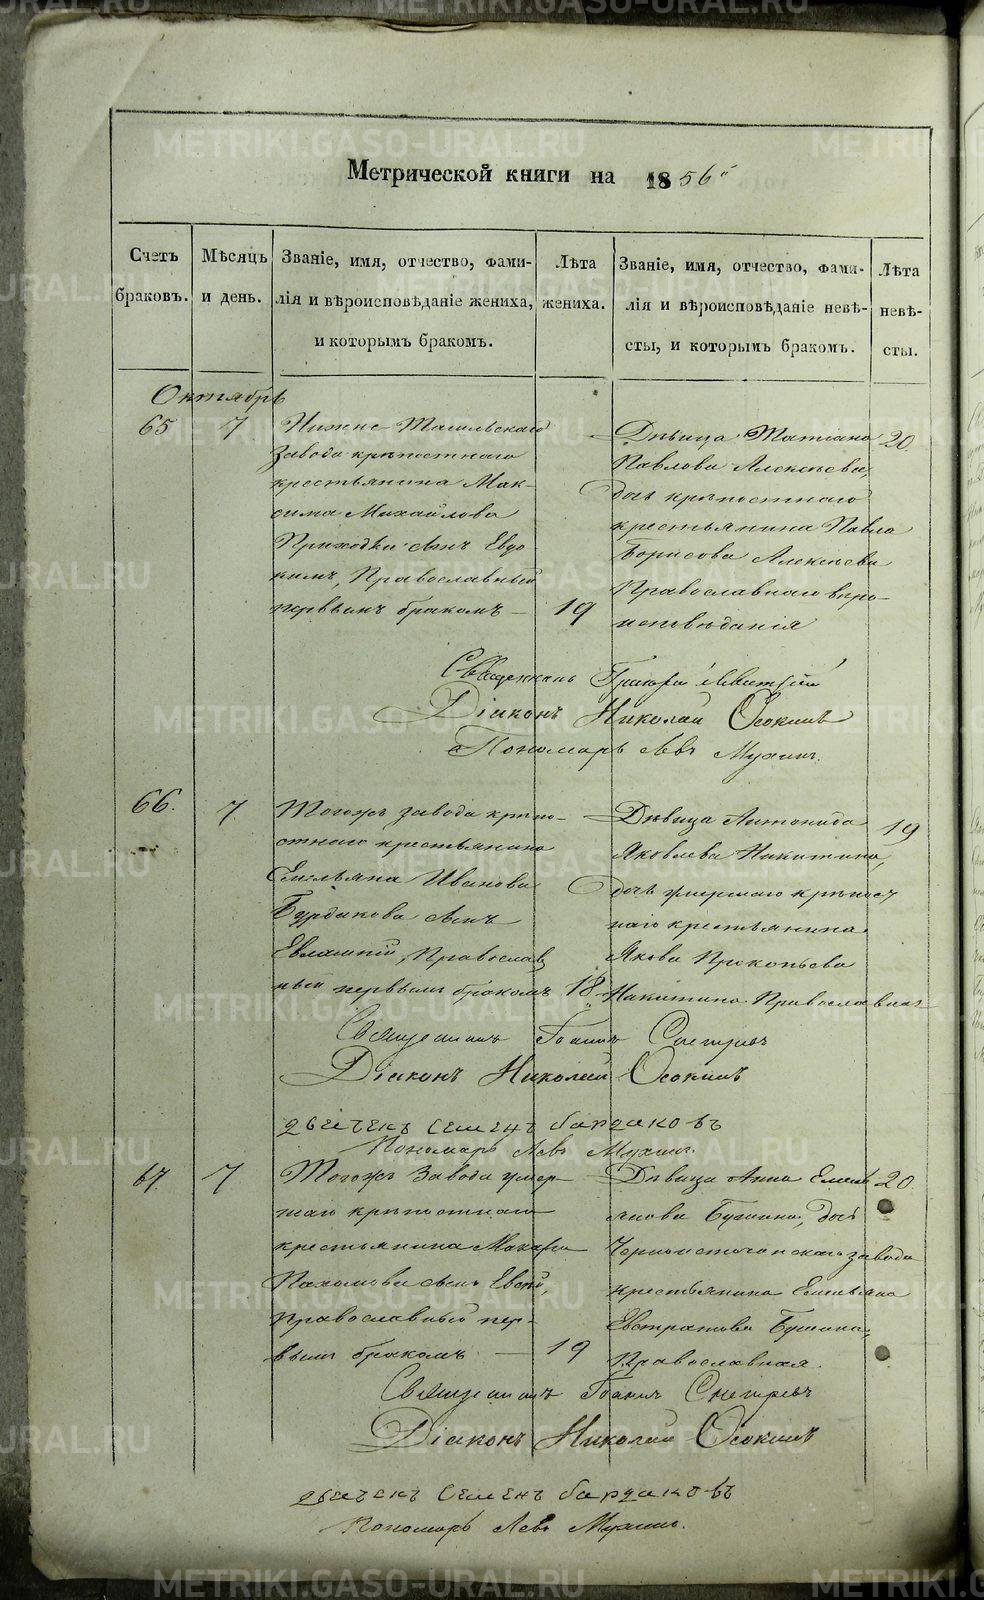 Метрической книги на 1856й
Счетъ браковъ.
Мѣсяцъ и день.
Званіе, имя, отчество, фами-
лія и вѣроисповѣданіе жениха,
и которымъ бракомъ.
Лѣта жениха.
Званіе, имя, отчество, фами-
лія и вѣроисповѣданіе невѣ-
сты, и которымъ бракомъ.
Лѣта невѣ-
сты.
Октябрь
65 7
Нижне Тагильскаго
завода крѣпостнаго
крестьянина Мак-
сима Михайлова
сынъ Евдо-
кимъ, Православный
первымъ бракомъ — 19
Дѣвица Татіана 20
Павлова Алексѣева,
дочь крѣпостнаго
крестьянина Павла
Борисова Алексѣева
Православнаго вѣро-
исповѣданія
Священникъ
Діаконъ Николай Осокинъ
Пономарь Левъ Мухинъ.
66. 7
Тогожъ завода крѣпо-
стнаго крестьянина
Емельяна Иванова
Бурдакова сынъ
Евлампій, Православ
ный первымъ бракомъ 18.
Дѣвица Антонида 19
Яковлева Никитина,
дочь умершаго крѣпост
наго крестьянина
Якова Прокопьева
Никитина Православная
Священникъ Іоаннъ
Діаконъ Николай Осокинъ
дьячекъ Семенъ бардаковъ
Пономарь Левъ Мухинъ.
67. 7
Тогожъ Завода умер
шаго крѣпостнаго
крестьянина Макара
Пахомова сынъ
Православный пер-
вымъ бракомъ — 19
Дѣвица Анна Емель 20.
янова дочь
Черноисточинскаго завода
крестьянина Емельяна
Евстратова
Православная.
Священникъ Іоаннъ
Діаконъ Николай Осокинъ
дьячекъ Семенъ бардаковъ
Пономарь Левъ Мухинъ.
METRIKI.GASO-URAL.RU